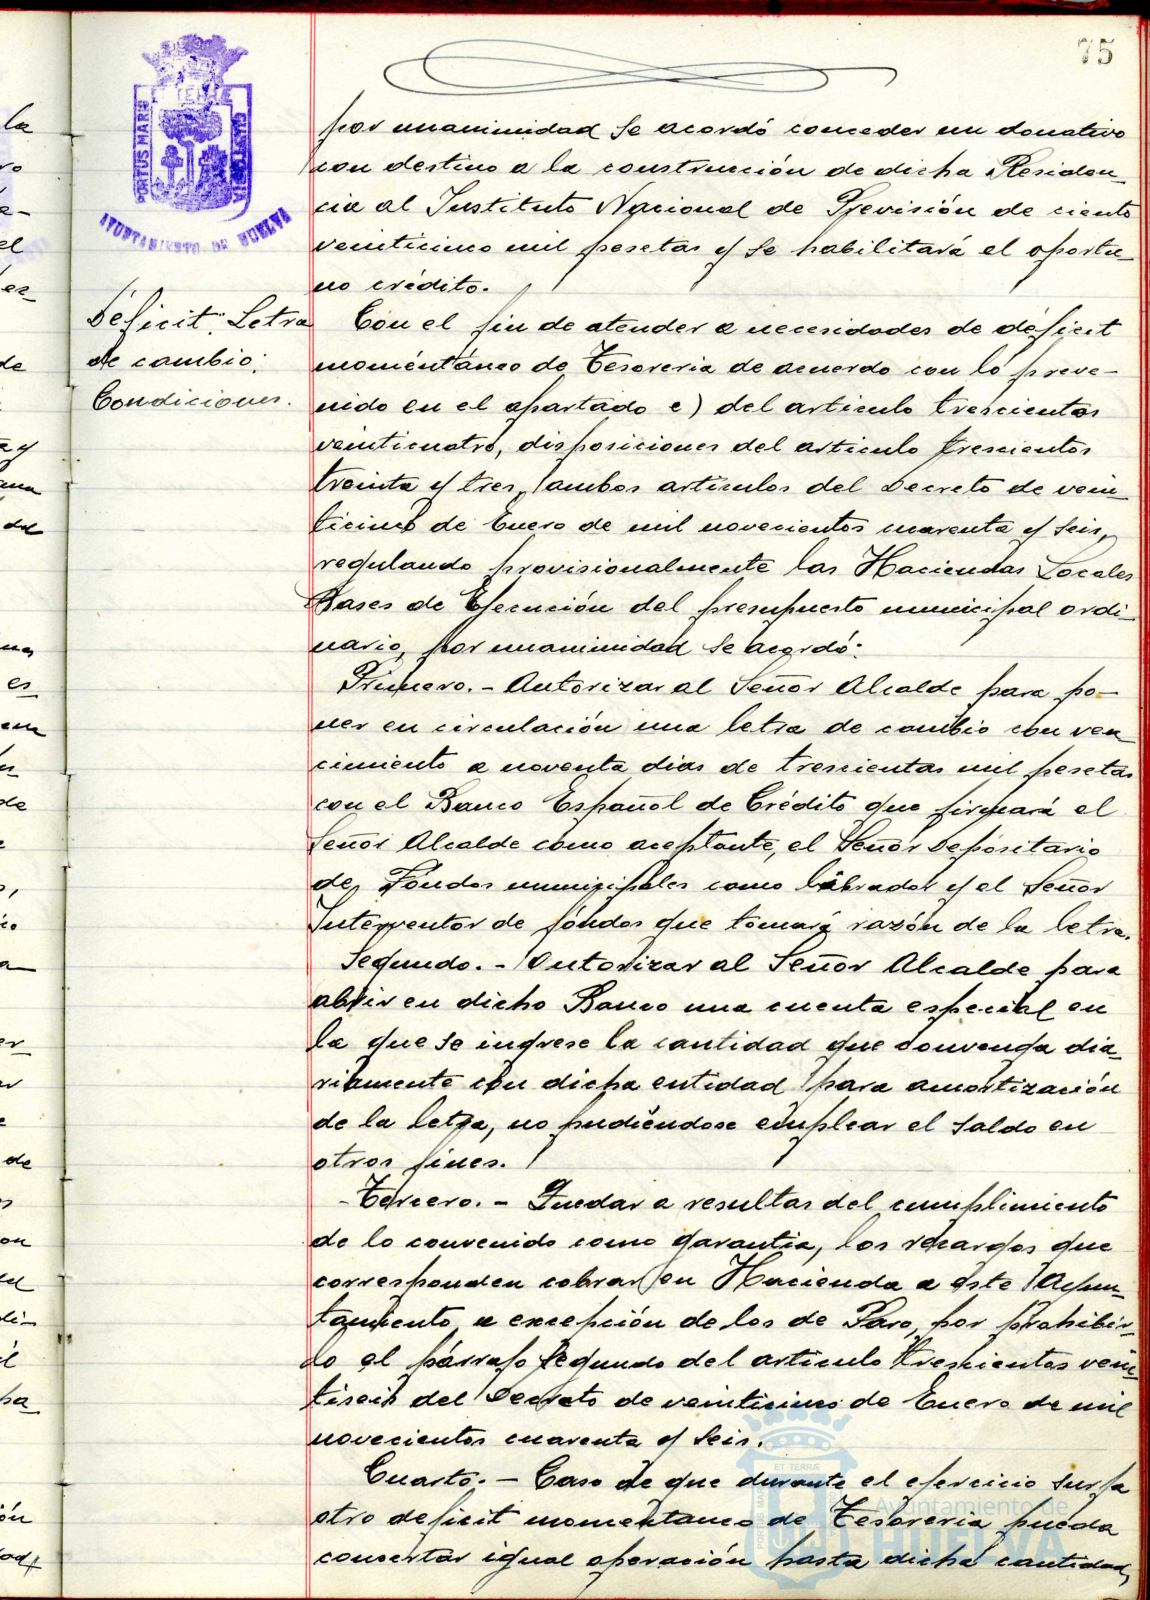 75
PORTUS MARIS
ET TERRÆ
CUSTODIA
AYUNTAMIENTO DE HUELVA
por unanimidad se acordó conceder un donativo
con destino a la construcción de dicha Residen_
cia al Instituto Nacional de Previsión de ciento
veinticinco mil pesetas y se habilitará el oportu_
no crédito.
Déficit. Letra
de cambio:
Condiciones.
Con el fin de atender a necesidades de déficit
momentáneo de Tesoreria de acuerdo con lo preve-
nido en el apartado e) del articulo trescientos
veinticuatro, disposiciones del articulo trescientos
treinta y tres, ambos articulos del Decreto de vein_
ticinco de Enero de mil novecientos cuarenta y seis,
regulando provisionalmente las Haciendas Locales
Bases de Ejecución del presupuesto municipal ordi_
nario, por unanimidad se acordó:
Primero.- Autorizar al Señor Alcalde para po-
ner en circulación una letra de cambio con ven_
cimiento a noventa dias de trescientas mil pesetas
con el Banco Español de Crédito que firmará el
Señor Alcalde como aceptante, el Señor Depositario
de Fondos municipales como librador y el Señor
Interventor de fondos que tomará razón de la letra.
Segundo.- Autorizar al Señor Alcalde para
abrir en dicho Banco una cuenta especial en
la que se ingrese la cantidad que convenga dia_
riamente con dicha entidad para amortización
de la letra, no pudiéndose emplear el saldo en
otros fines.
-Tercero.- Quedar a resultas del cumplimiento
de lo convenido como garantia, los recargos que
corresponden cobrar en Hacienda a este Ayun_
tamiento, a excepción de los de Paro, por prohibir_
lo el párrafo segundo del articulo trescientos vein_
tiseis del Decreto de veinticinco de Enero de mil
novecientos cuarenta y seis.
Cuarto.- Caso de que durante el ejercicio surja
otro deficit momentaneo de Tesoreria pueda
concertar igual operación hasta dicha cantidad,
ET TERRÆ
Ayuntamiento de
HUELVA